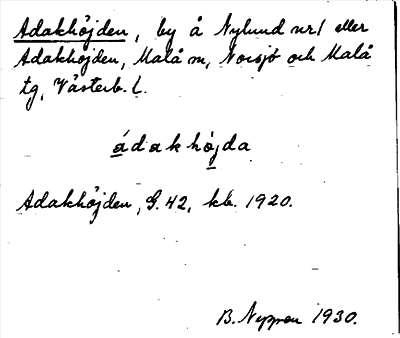 Adakhöjden, by å Nylund nr1 eller
Adakhöjden, Malå sn, Norsjö och Malå
tg, Västerb. l.
ádakhöjda
Adakhöjden, G. 42, kb. 1920.
B. Nyman 1930.